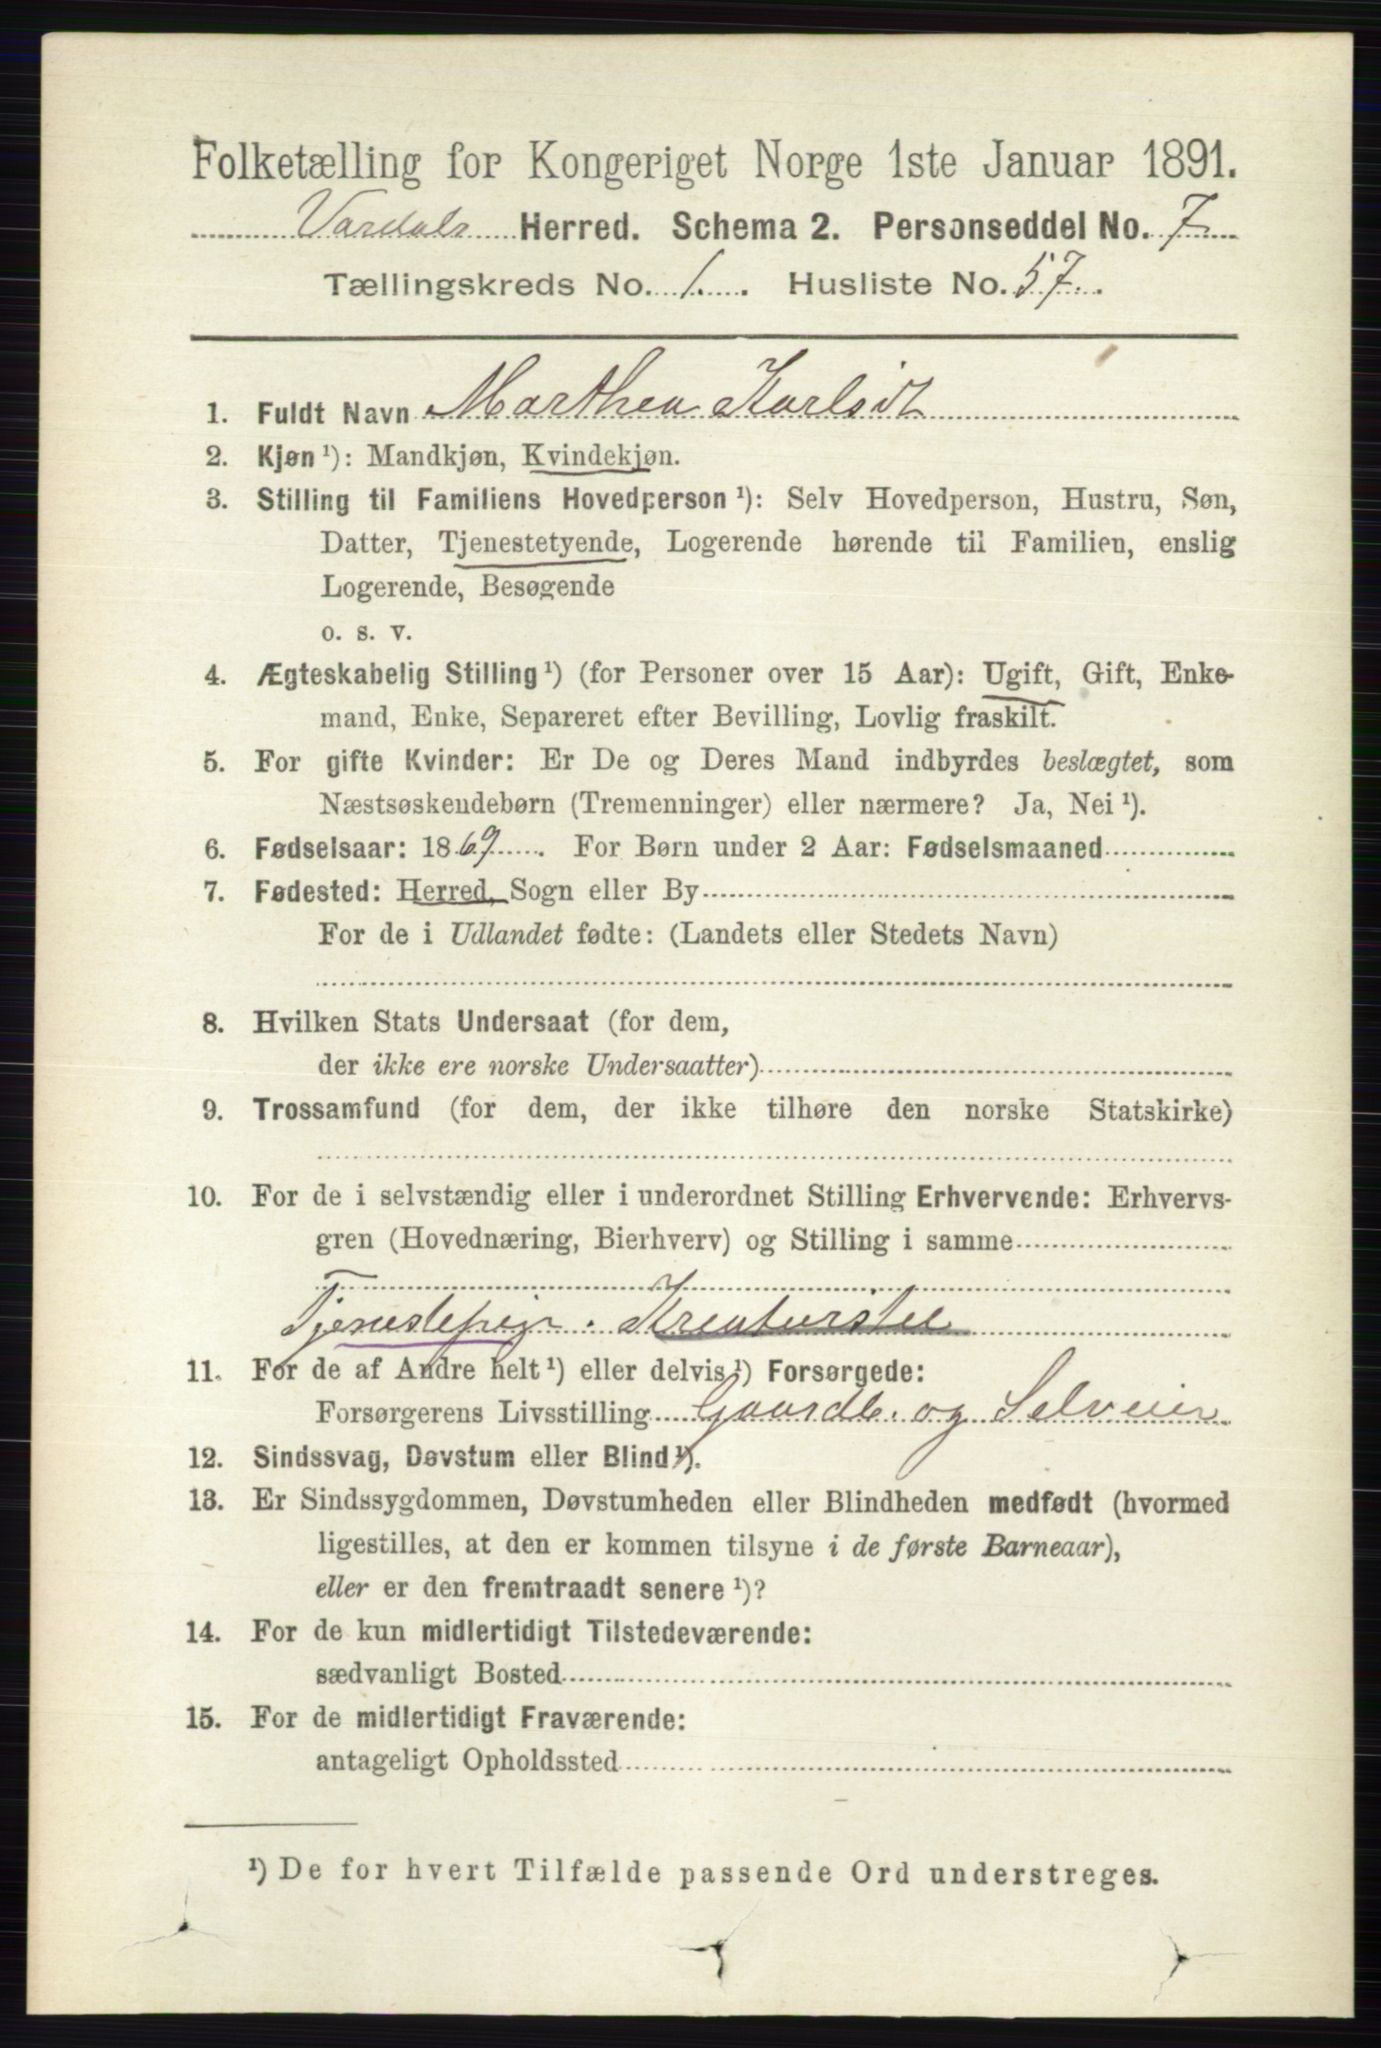 Folketælling for Kongeriget Norge 1ste Januar 1891.
Vardals Herred. Schema 2. Personseddel No. 7
Tællingskreds No. 1. Husliste No. 57.
1. Fuldt Navn Marthea Karlsdt
2. Kjøn ¹): Mandkjøn, Kvindekjøn.
3. Stilling til Familiens Hovedperson ¹): Selv Hovedperson, Hustru, Søn,
Datter, Tjenestetyende, Logerende hørende til Familien, enslig
Logerende, Besøgende
o. s. v.
4. Ægteskabelig Stilling ¹) (for Personer over 15 Aar): Ugift, Gift, Enke-
mand, Enke, Separeret efter Bevilling, Lovlig fraskilt.
5. For gifte Kvinder: Er De og Deres Mand indbyrdes beslægtet, som
Næstsøskendebørn (Tremenninger) eller nærmere? Ja, Nei ¹).
6. Fødselsaar: 1869. For Børn under 2 Aar: Fødselsmaaned
7. Fødested: Herred, Sogn eller By
For de i Udlandet fødte: (Landets eller Stedets Navn)
8. Hvilken Stats Undersaat (for dem,
der ikke ere norske Undersaatter)
9. Trossamfund (for dem, der ikke tilhøre den norske Statskirke)
10. For de i selvstændig eller i underordnet Stilling Erhvervende: Erhvervs-
gren (Hovednæring, Bierhverv) og Stilling i samme
Tjenestepige. Kreaturstel
11. For de af Andre helt ¹) eller delvis ¹) Forsørgede:
Forsørgerens Livsstilling Gaardb. og Selveier
12. Sindssvag, Døvstum eller Blind ¹).
13. Er Sindssygdommen, Døvstumheden eller Blindheden medfødt (hvormed
ligestilles, at den er kommen tilsyne i de første Barneaar),
eller er den fremtraadt senere ¹)?
14. For de kun midlertidigt Tilstedeværende:
sædvanligt Bosted
15. For de midlertidigt Fraværende:
antageligt Opholdssted
¹) De for hvert Tilfælde passende Ord understreges.